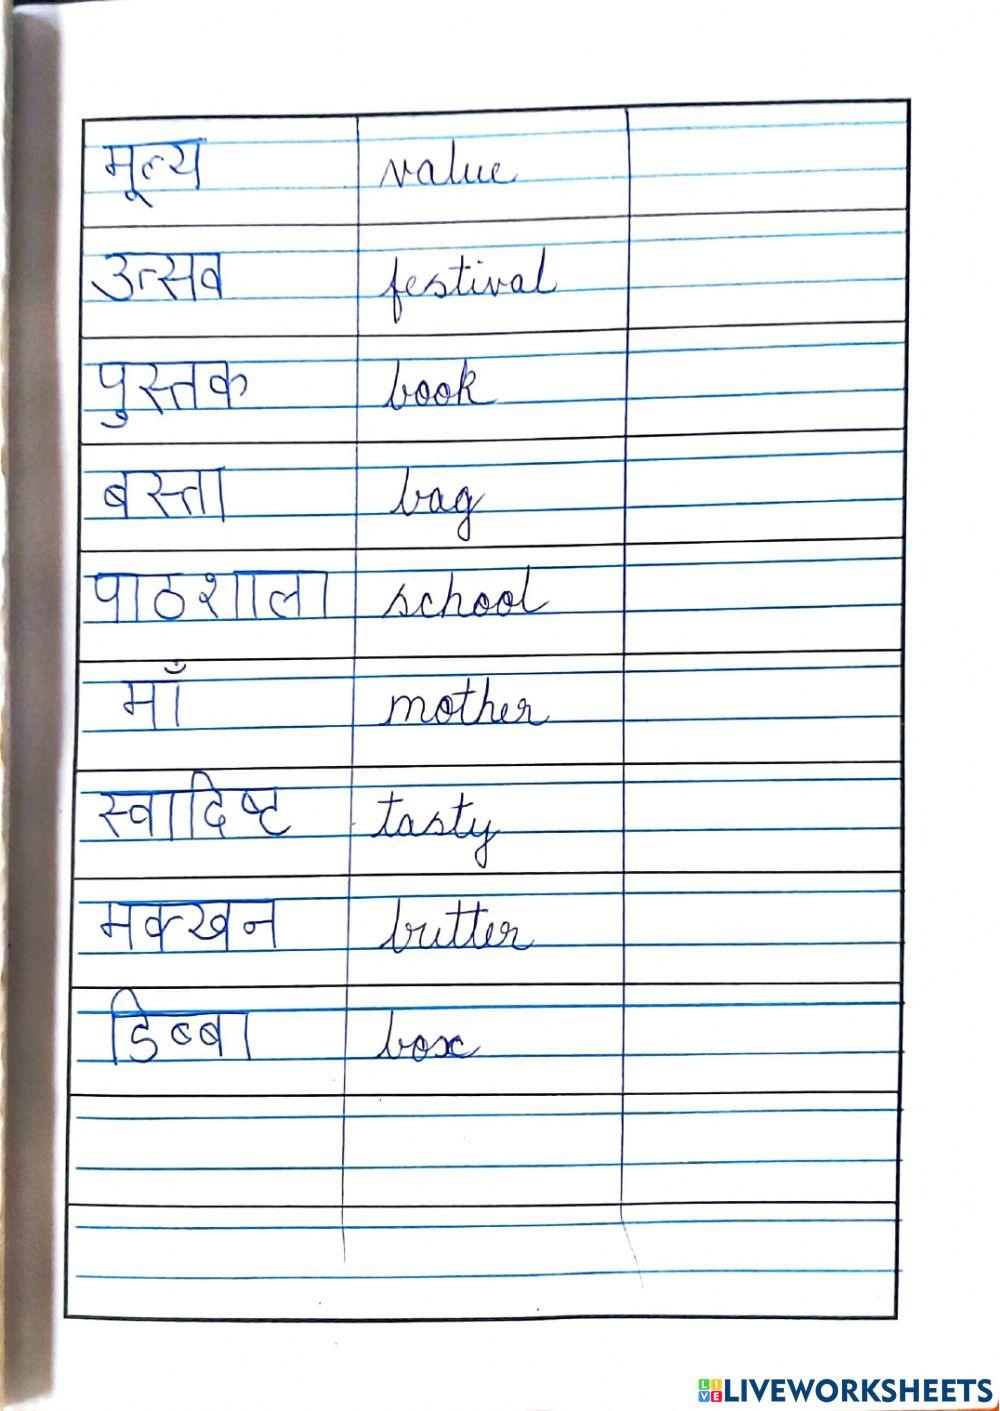 मूल्य value
उत्सव festival
पुस्तक book
बस्ता bag
पाठशाला school
माँ mother
स्वादिष्ट tasty
मक्खन butter
डिब्बा box
LIVEWORKSHEETS